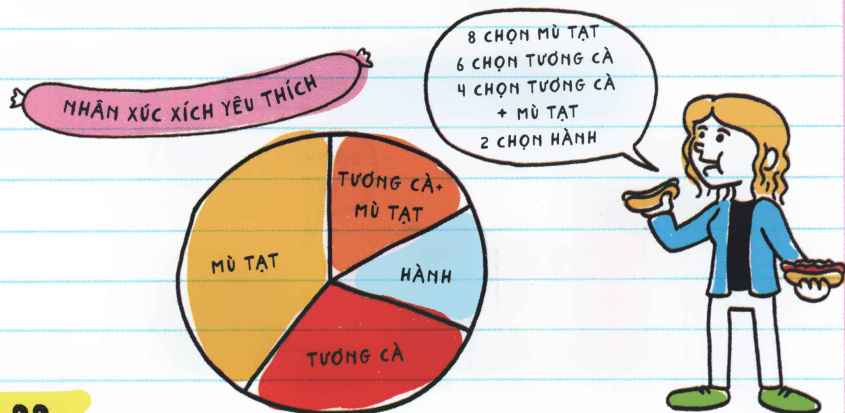 NHÂN XÚC XÍCH YÊU THÍCH
8 CHỌN MÙ TẠT
6 CHỌN TƯƠNG CÀ
4 CHỌN TƯƠNG CÀ
+ MÙ TẠT
2 CHỌN HÀNH
TƯƠNG CÀ+
MÙ TẠT
MÙ TẠT
HÀNH
TƯƠNG CÀ